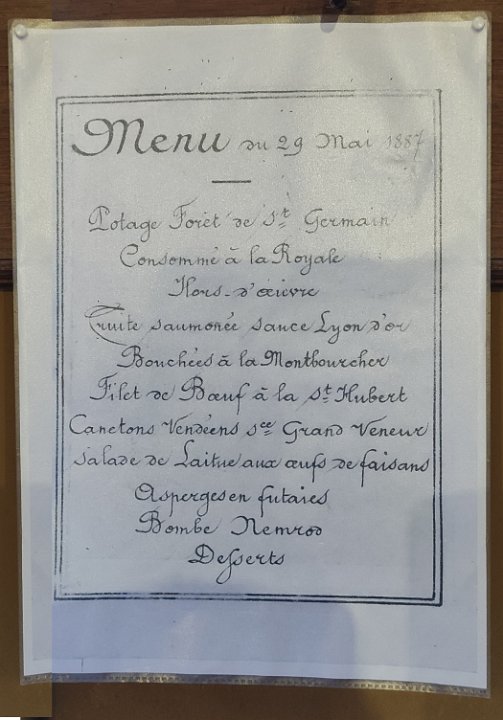 Menu du 29 Mai 1887
Potage Forêt de St Germain
Consommé à la Royale
Hors-d'œuvre
Truite saumonée sauce Lyon d'or
Bouchées à la Montbourcher
Filet de Bœuf à la St Hubert
Canetons Vendéens sce Grand Veneur
Salade de Laitue aux œufs de faisans
Asperges en futaies
Bombe Nemrod
Desserts